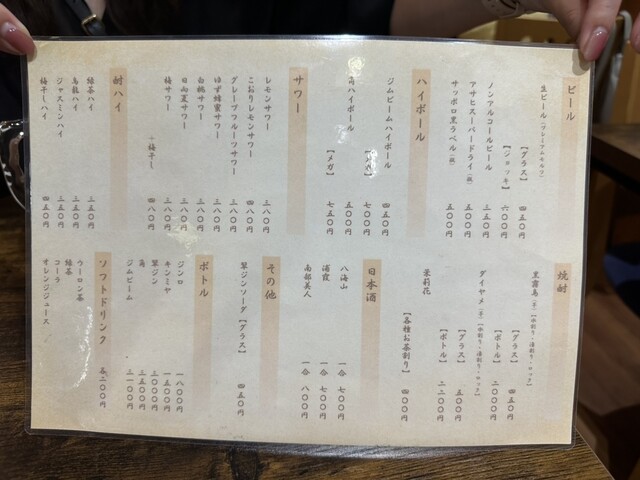 ビール
生ビール（プレミアムモルツ）
【グラス】 四五〇円
【ジョッキ】 六〇〇円
ノンアルコールビール 三五〇円
アサヒスーパードライ（瓶） 五〇〇円
サッポロ黒ラベル（瓶） 五〇〇円
ハイボール
ジムビームハイボール 四五〇円
【メガ】 七〇〇円
角ハイボール 五〇〇円
【メガ】 七五〇円
サワー
レモンサワー 三八〇円
こおりレモンサワー 四八〇円
グレープフルーツサワー 三八〇円
ゆず蜂蜜サワー 三八〇円
白桃サワー 三八〇円
日向夏サワー 三八〇円
梅サワー 三八〇円
＋梅干し 四八〇円
酎ハイ
緑茶ハイ 三五〇円
烏龍ハイ 三五〇円
ジャスミンハイ 三五〇円
梅干しハイ 四五〇円
焼酎
黒霧島（芋）【水割り・湯割り・ロック】
【グラス】 四五〇円
【ボトル】 二〇〇〇円
ダイヤメ（芋）【水割り・湯割り・ロック】
【グラス】 五〇〇円
【ボトル】 二二〇〇円
茉莉花
【各種お茶割り】 四〇〇円
日本酒
八海山 一合 七〇〇円
浦霞 一合 七〇〇円
南部美人 一合 八〇〇円
その他
翠ジンソーダ【グラス】 四五〇円
ボトル
ジンロ 一八〇〇円
キンミヤ 一五〇〇円
翠ジン 三〇〇〇円
角 三五〇〇円
ジムビーム 三一〇〇円
ソフトドリンク
ウーロン茶
緑茶
コーラ
オレンジジュース
各二〇〇円